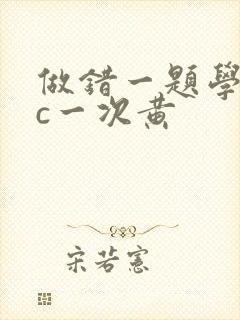 做錯一題學
c一次黃
宋若憲